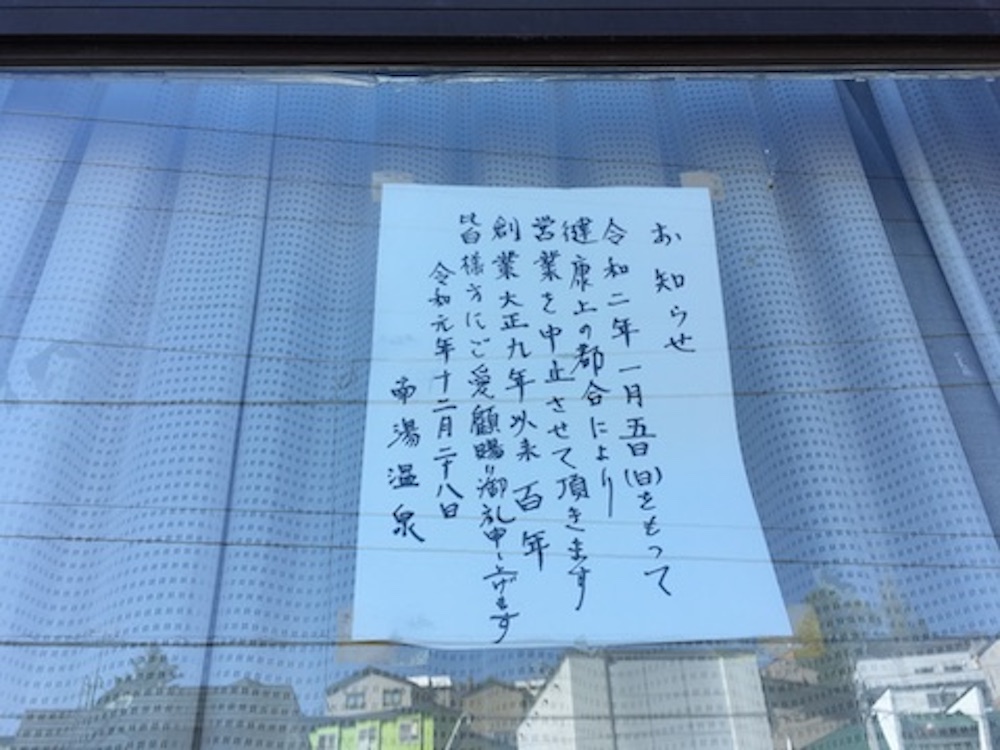 お知らせ
令和二年一月五日(日)をもって
健康上の都合により
営業を中止させて頂きます
創業大正九年以来百年
皆様方にご愛顧賜り御礼申し上げます
令和元年十二月二十八日
南湯温泉